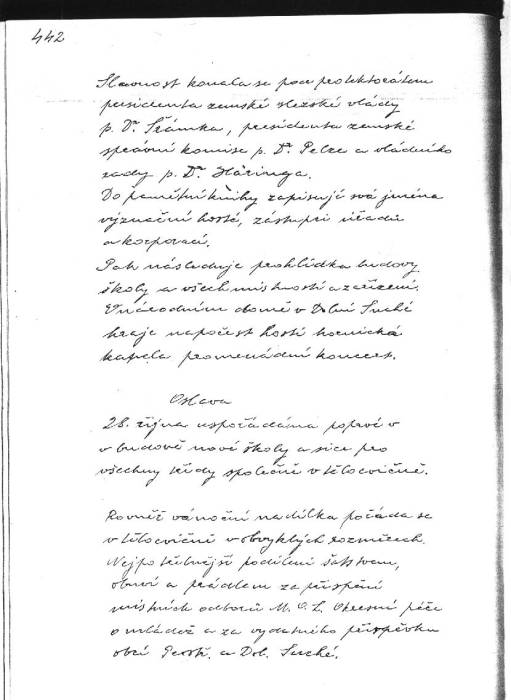 442
Slavnost konala se pod protektorátem
presidenta zemské slezské vlády
p. Dr. Šrámka, presidenta zemské
správní komise p. Dr. Pelze a vládního
rady p. Dr. Häringa.
Do pamětní knihy zapisují svá jména
význační hosté, zástupci úřadů
a korporací.
Pak následuje prohlídka budovy
školy a všech místností a zařízení.
V národním domě v Dolní Suché
hraje na počest hostí hornická
kapela promenádní koncert.
Oslava
28. října uspořádána poprvé v
v budově nové školy a sice pro
všechny třídy společně v tělocvičně.
Rovněž vánoční nadílka pořádá se
v tělocvičně v obvyklých rozměrech.
Nejpotřebnější poděleni šatstvem,
obuví a prádlem za přispění
místních odborů M. O. L. Okresní péče
o mládež a za vydatného příspěvku
obcí Prostř. a Dol. Suché.